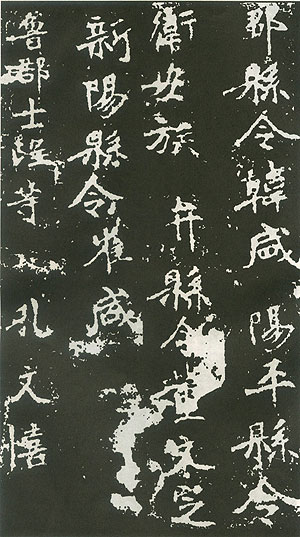 郡縣令韓咸 陽平縣令
衛安族 弁縣令董文定
新陽縣令崔咸
魯郡士望等 孔文憘